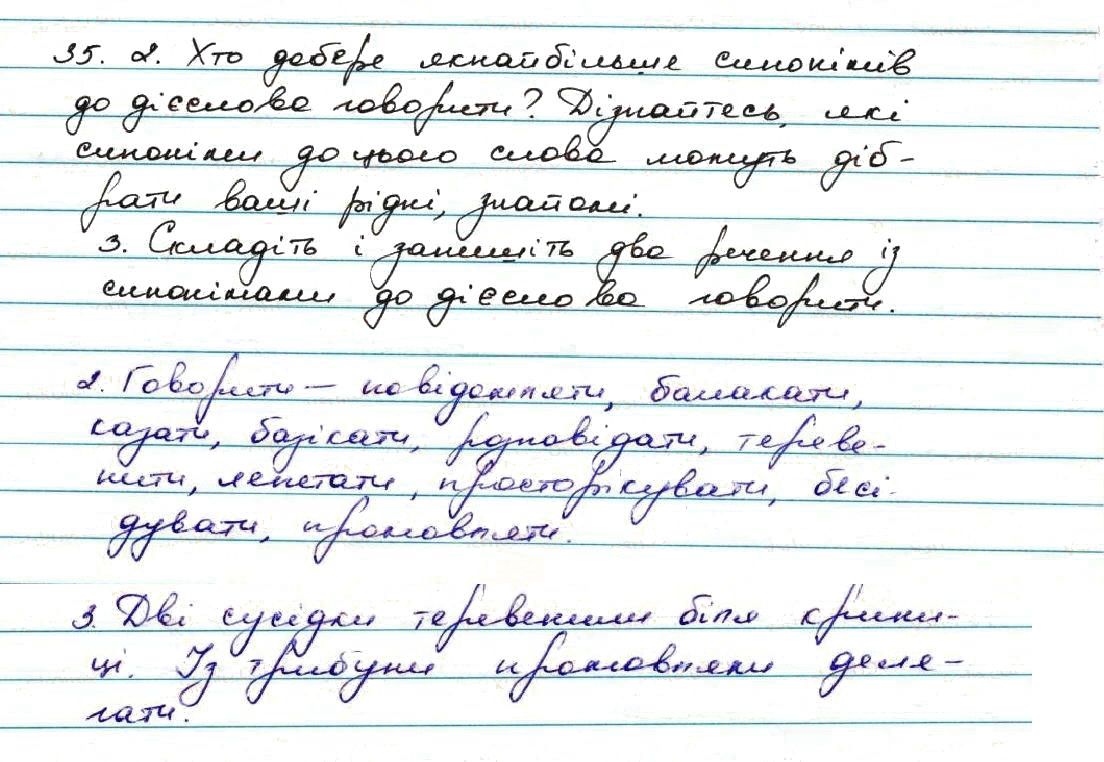 35. 2. Хто добере якнайбільше синонімів
до дієслова говорити? Дізнайтесь, які
синоніми до цього слова можуть діб-
рати ваші рідні, знайомі.
3. Складіть і запишіть два речення із
синонімами до дієслова говорити.
2. Говорити — повідомляти, балакати,
казати, базікати, розповідати, тереве-
нити, лепетати, просторікувати, бесі-
дувати, промовляти.
3. Дві сусідки теревенили біля крини-
ці. Із трибуни промовляли деле-
гати.